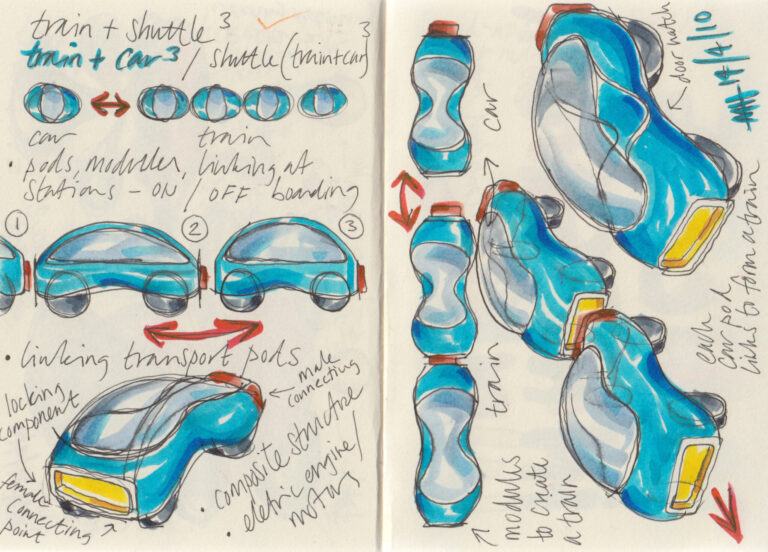 train + shuttle ³
train + car ³ / shuttle (train+car) ³
car
train
• pods, modules, linking at
stations – ON / OFF boarding
1
2
3
• linking transport pods
locking
component
male
connecting
female
connecting
point
• composite structure
• eletric engine/
motors
car
train
modules
to create
a train
door hatch
14/4/10
each
car pod
links to form a train